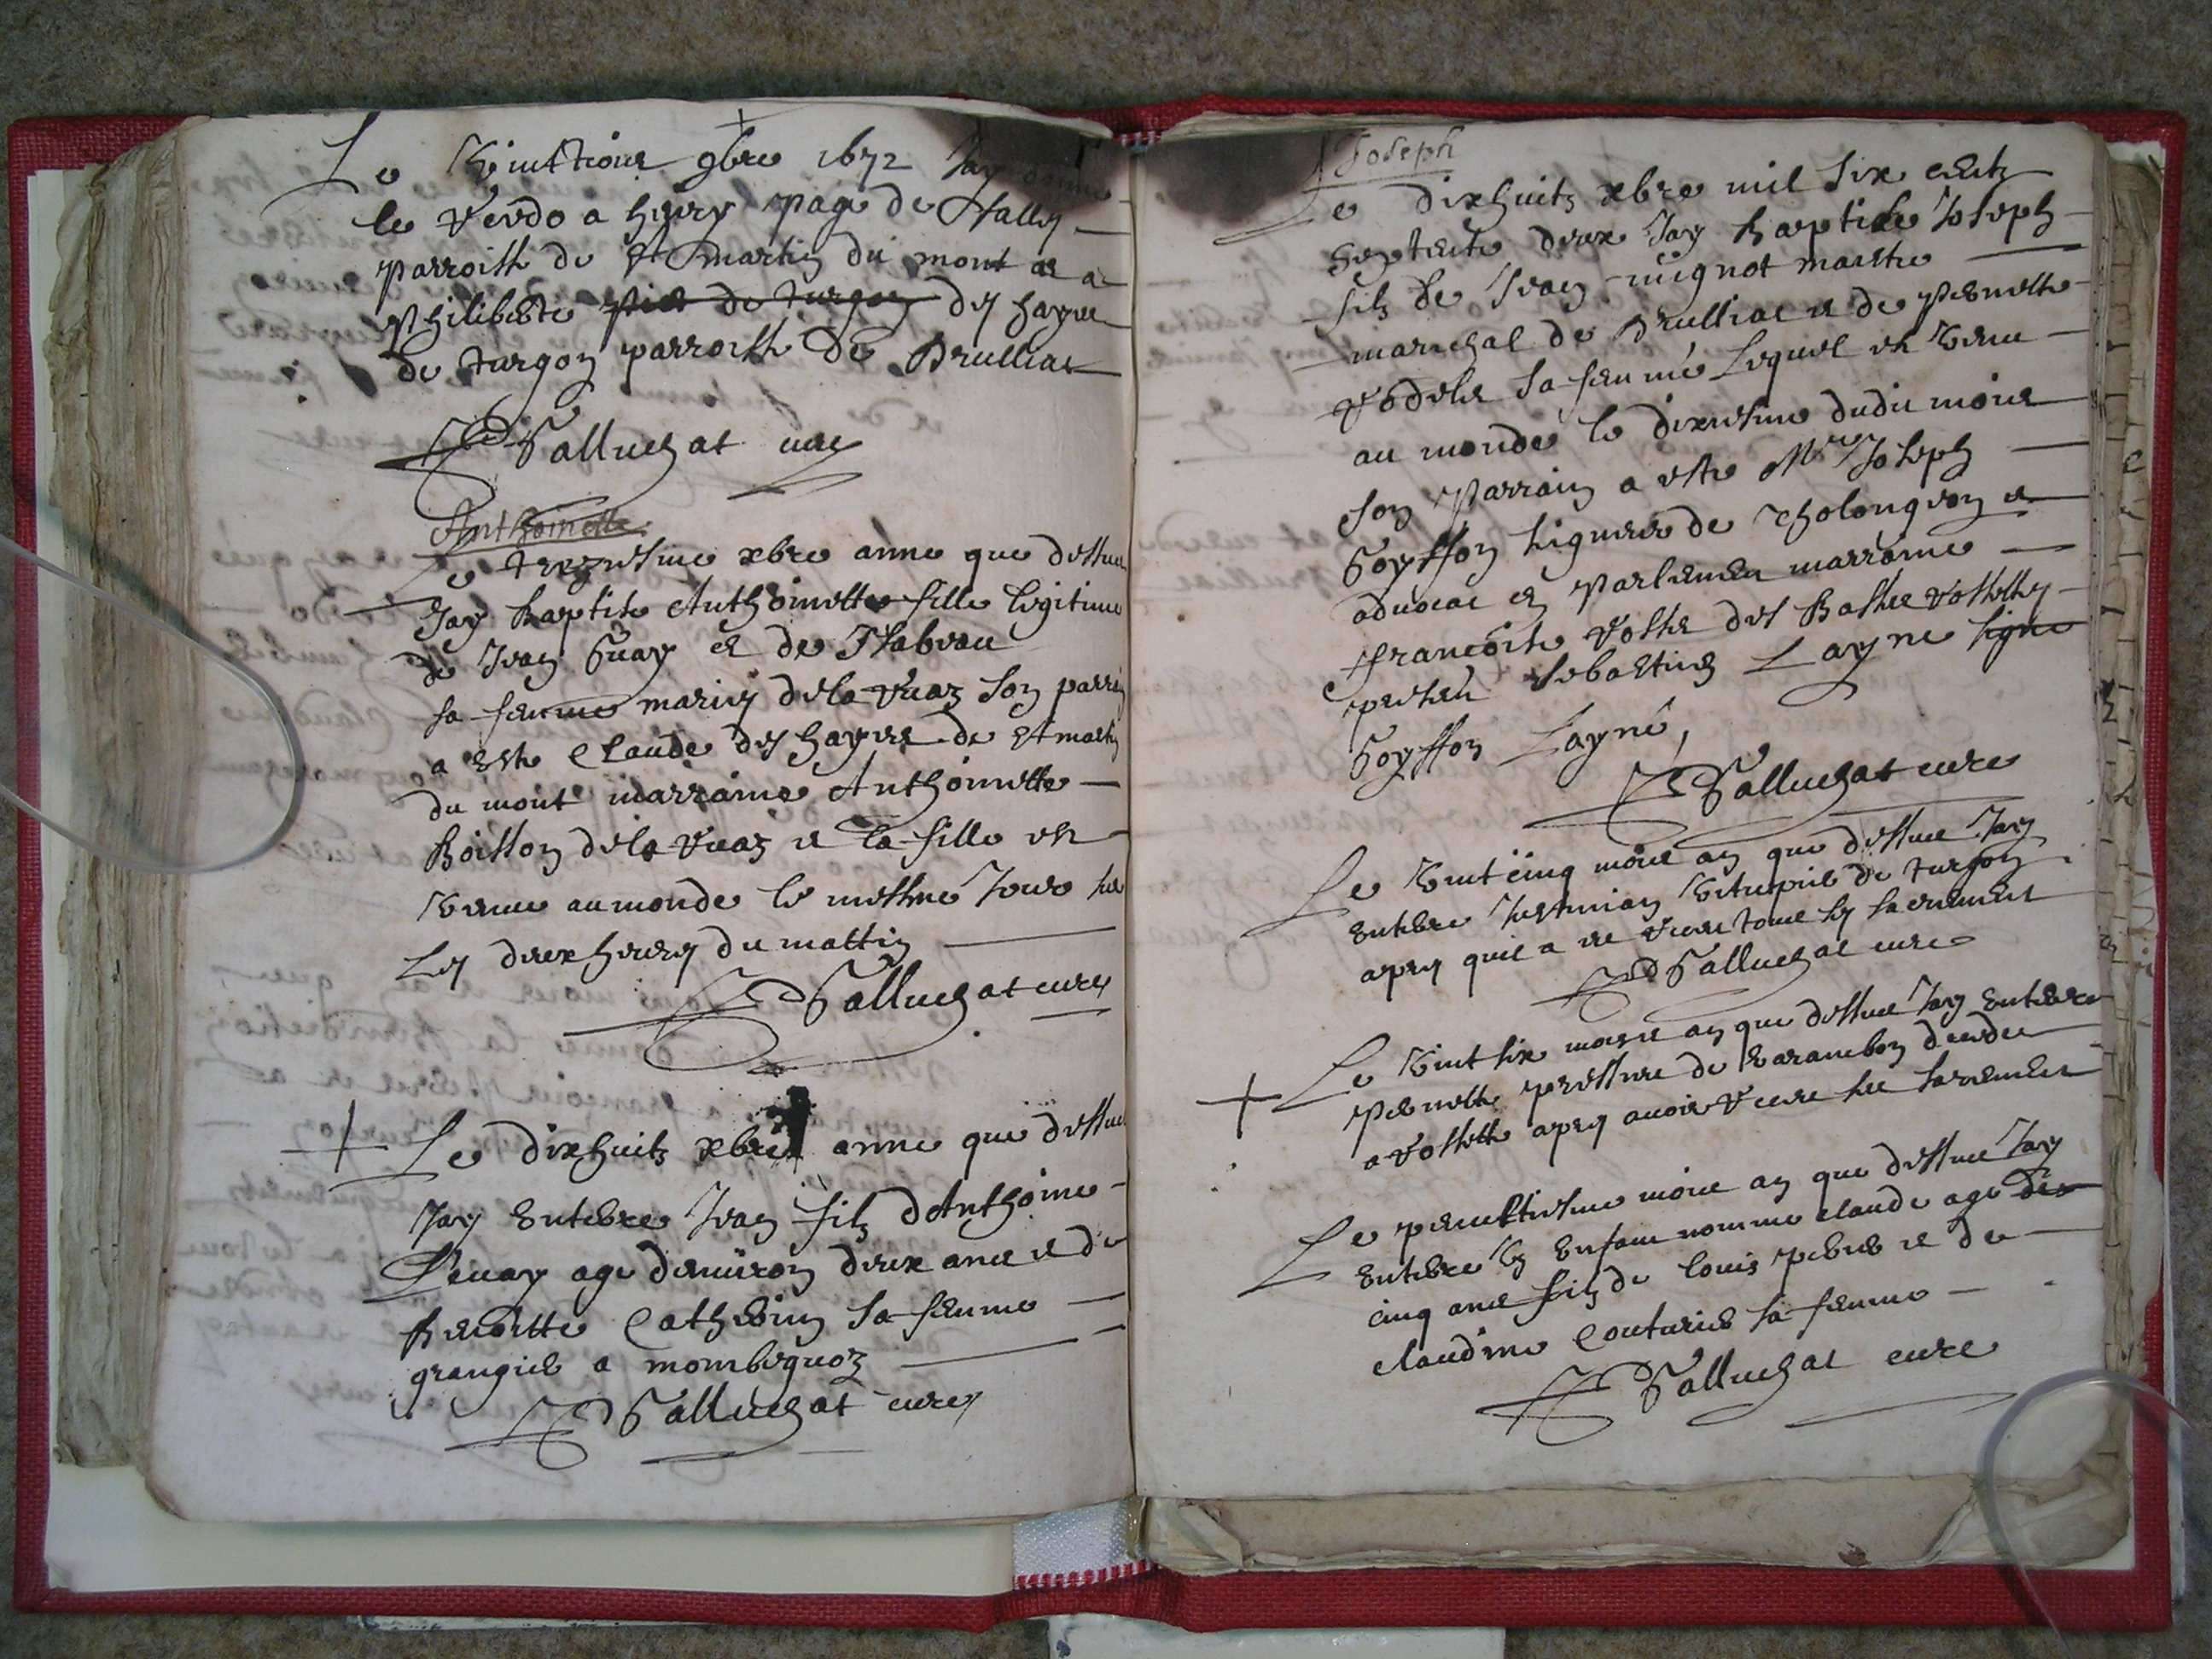 Le vinttrois 9bre 1672 Jay donne
le Vendo a henry page de
parroisse de St martin du mont et a
philiberte de turgon des hayes
de turgon parroisse de Druilliat
Palluchat cure
Anthoinette
Le trezieme xbre anne que dessus
Jay baptise Anthoinette fille legitime
de Jean Guay et de Isabeau
sa femme mariez dela Vuaz son parrin
a este Claude des hayes de St martin
du mont marraine Anthoinette
Boisson dela Vuaz et la fille est
venue au monde le mesme Jour sur
Les deux heures du mattin
Palluchat cure
Le dixhuits xbre anne que dessus
Jay enterre Jean fils dAnthoine
age denviron deux ans et de
benoitte Catherin sa femme
grangier a
Palluchat cure
Joseph
Le dixhuits xbre mil six cents
septente deux Jay baptise Joseph
fils de Jean mignot maistre
mareschal de Druilliat et de pernette
sa femme Lequel est venu
au monde le dixiesme dudit mois
son parrain a este Mre Joseph
Goyffon seigneur de Tholongeon et
advocat en parlement marraine
francoise
present sebastien Layne signe
Goyffon Layné,
Palluchat cure
Le vintcinq mois an que dessus Jay
enterre de turgon
apres quil a receu tous les sacrements
Palluchat cure
Le vintsix mois an que dessus Jay enterre
pernette de Varambon
a apres avoir receu les sacrements
Le penultiesme mois an que dessus Jay
enterre un enfant nomme claude age de
cinq ans fils de louis et de
claudine Couturier sa femme
Palluchat cure